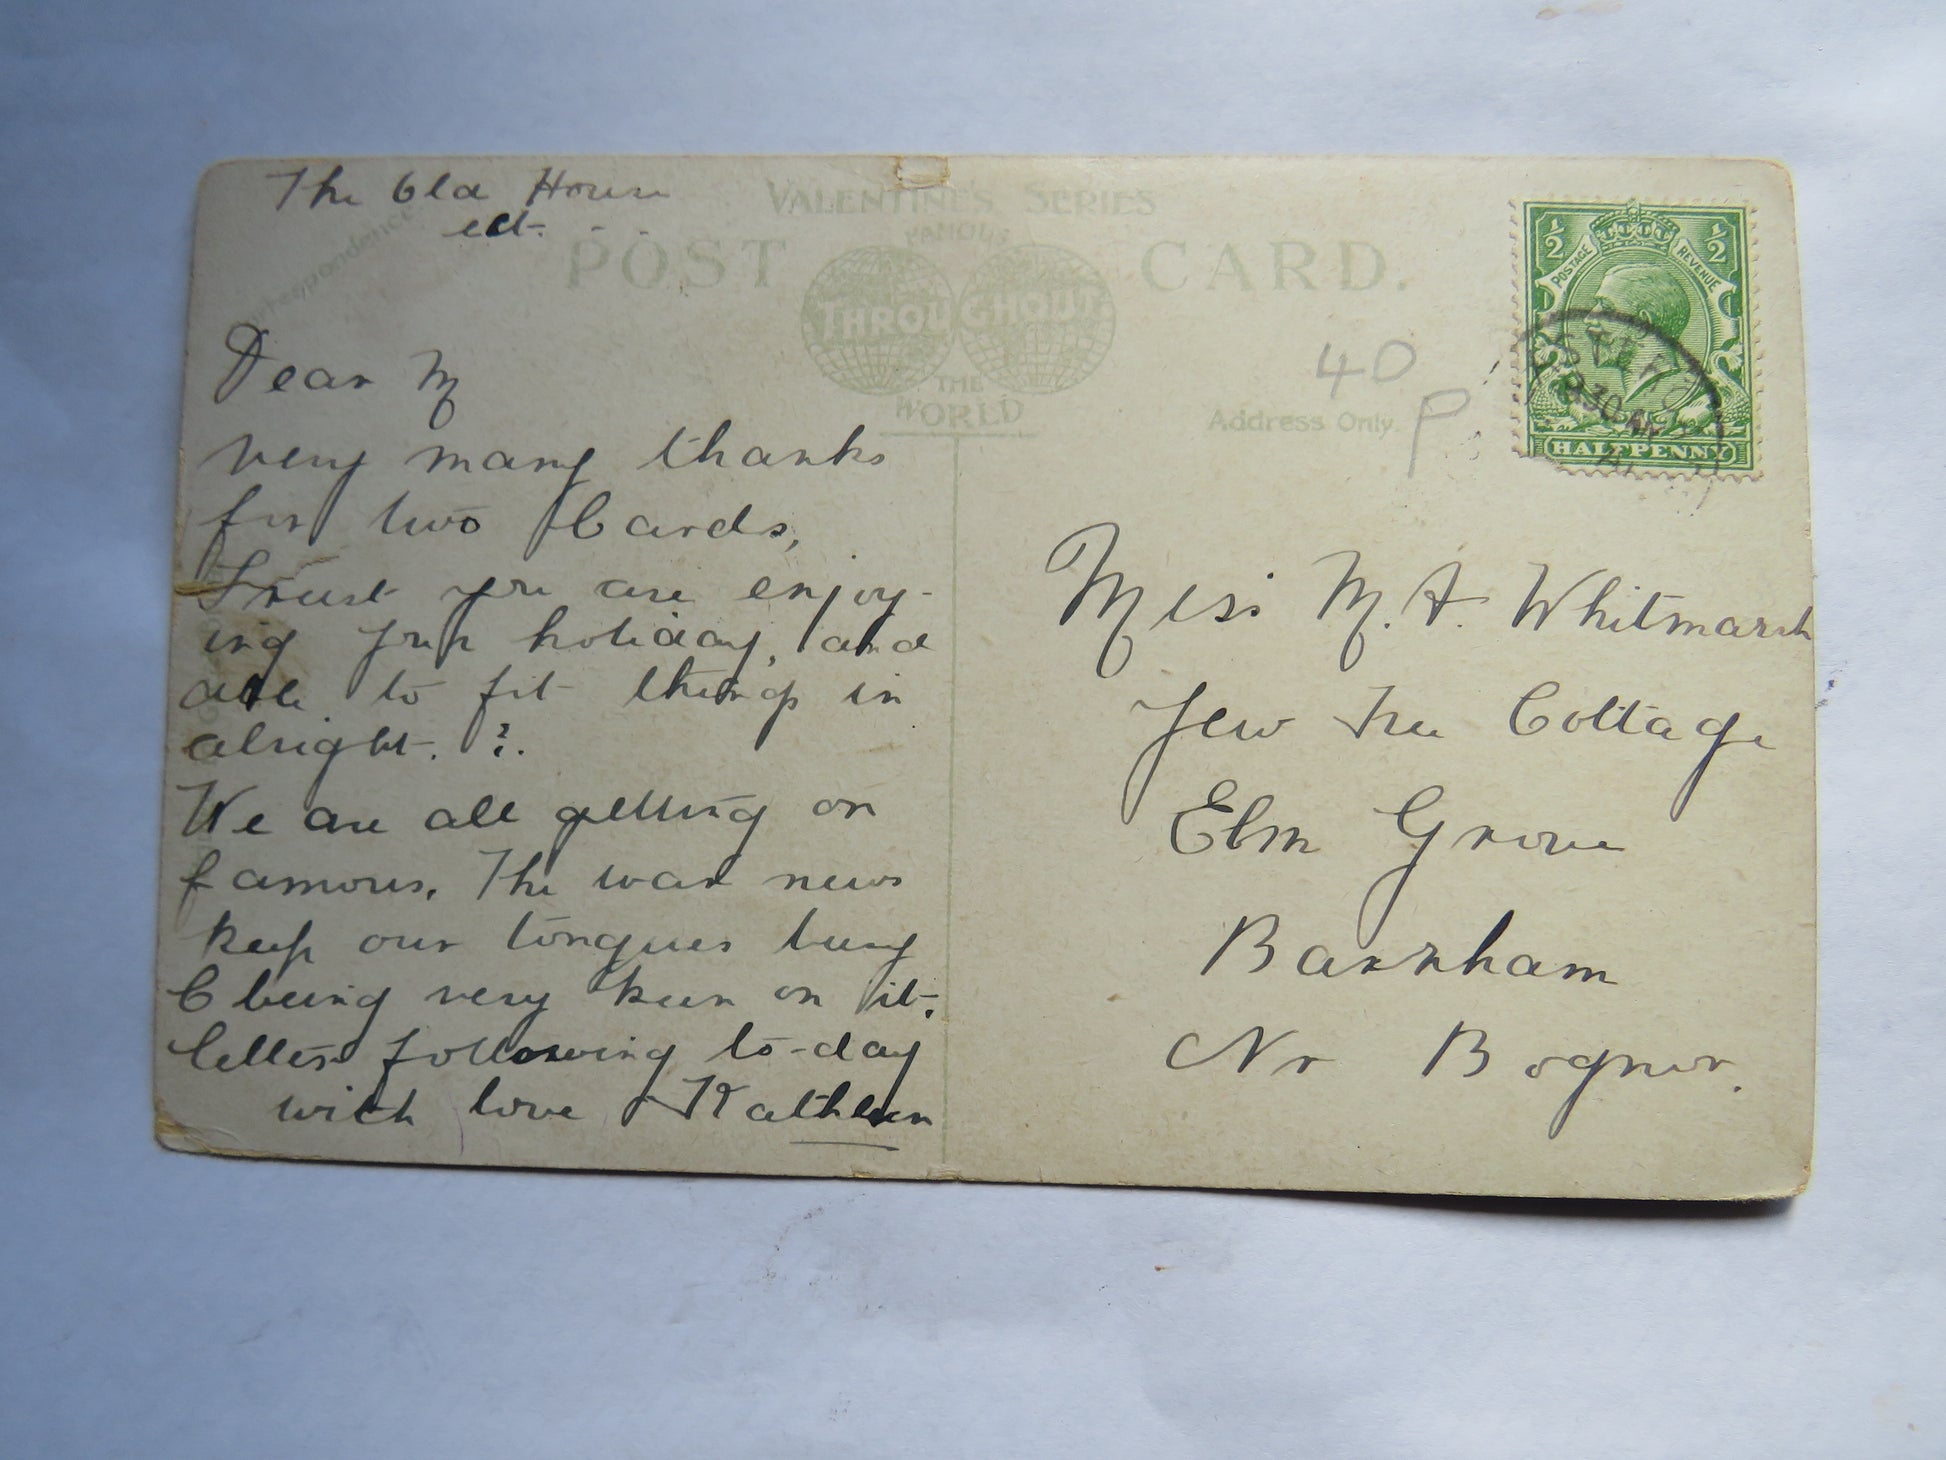 The Old House
ect. - -
Correspondence
VALENTINE'S SERIES
POST CARD.
FAMOUS
THROUGHOUT
THE
WORLD
Address Only.
40
P
½ ½
POSTAGE REVENUE
HALFPENNY
Dear M
very many thanks
for two Cards,
Trust you are enjoy-
ing your holiday, and
able to fit things in
alright. ?.
We are all getting on
famous. The war news
keep our tongues busy
C being very keen on it.
Letters following to-day
with love Kathleen
Miss M. A. Whitmarsh
Yew Tree Cottage
Elm Grove
Barnham
Nr Bognor.